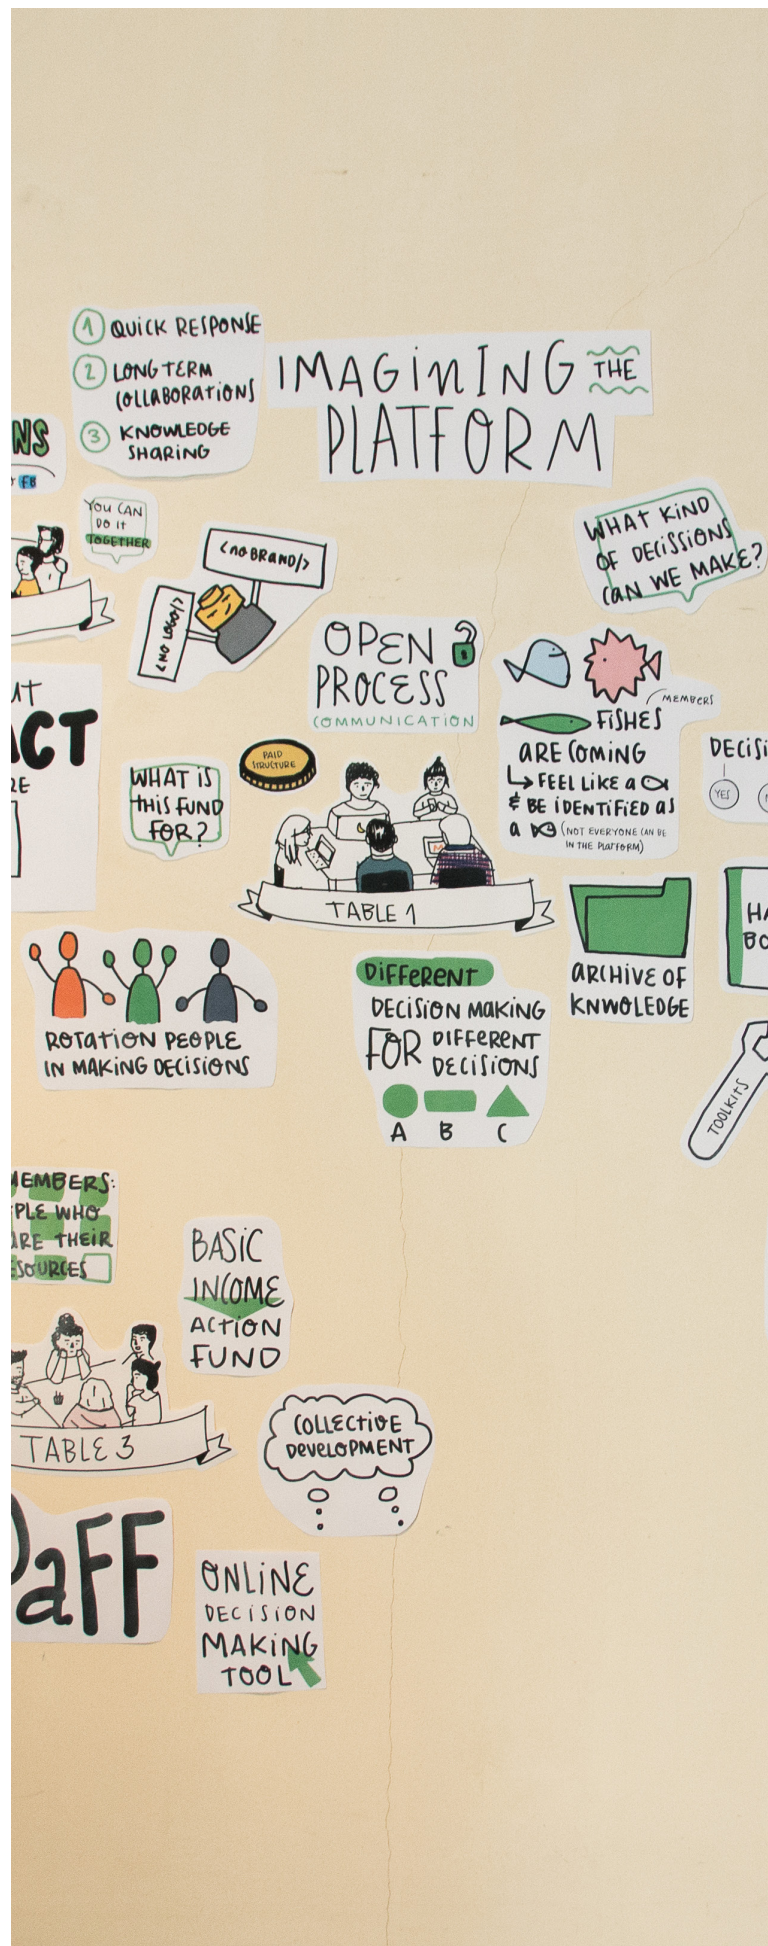 1 QUICK RESPONSE
2 LONG TERM
COLLABORATIONS
3 KNOWLEDGE
SHARING
IMAGINING THE
PLATFORM
NS
FB
YOU CAN
DO IT
TOGETHER
<NO BRAND/>
<NO LOGO/>
WHAT KIND
OF DECISSIONS
CAN WE MAKE?
OPEN
PROCESS
COMMUNICATION
MEMBERS
FISHES
ARE COMING
FEEL LIKE A
& BE IDENTIFIED AS
A (NOT EVERYONE CAN BE
IN THE PLATFORM)
UT
ACT
RE
PAID
STRUCTURE
WHAT IS
THIS FUND
FOR?
DECISI
YES
TABLE 1
HA
BO
ARCHIVE OF
KNWOLEDGE
ROTATION PEOPLE
IN MAKING DECISIONS
DIFFERENT
DECISION MAKING
FOR DIFFERENT
DECISIONS
A B C
TOOLKITS
MEMBERS:
PLE WHO
ARE THEIR
ESOURCES
BASIC
INCOME
ACTION
FUND
TABLE 3
COLLECTIVE
DEVELOPMENT
aFF
ONLINE
DECISION
MAKING
TOOL